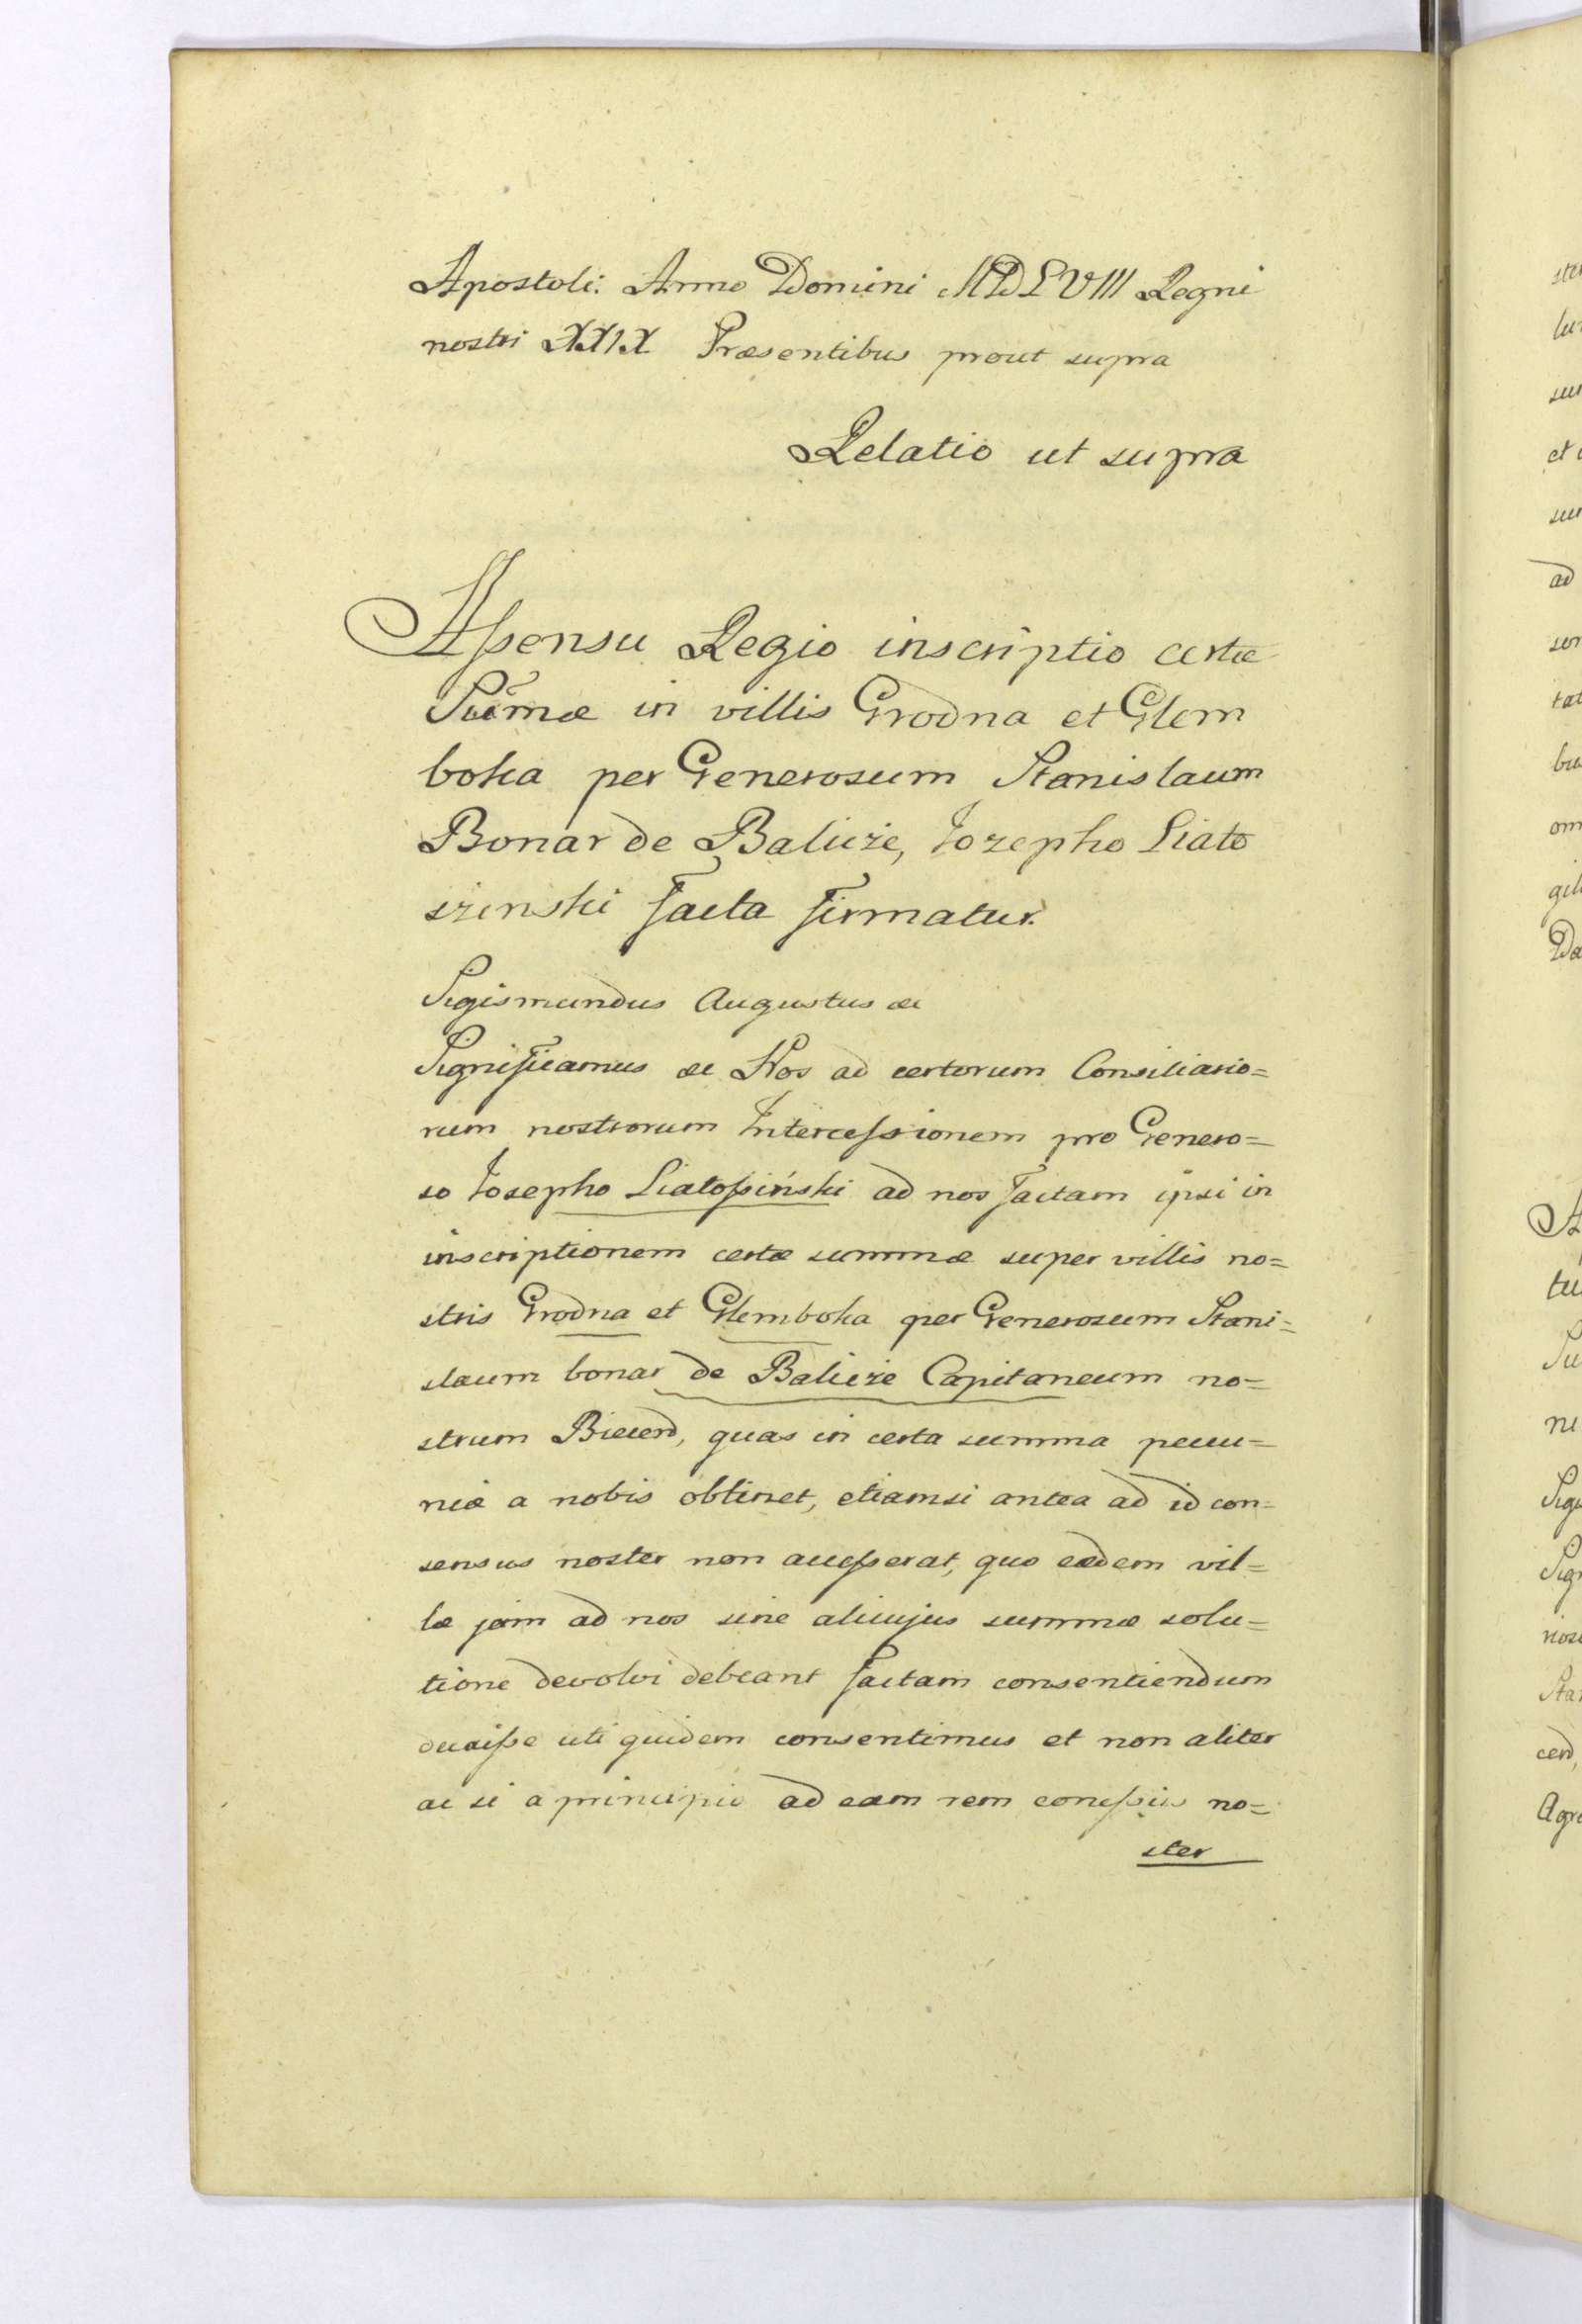 Apostoli. Anno Domini MDLVIII Regni
nostri XXIX Præsentibus prout supra
Relatio ut supra
Aſsensu Regio inscriptio certæ
Sum̃æ in villis Grodna et Glem
boka per Generosum Stanislaum
Bonar de Balicze, Jozepho Liato
szinski facta firmatur.
Sigismundus Augustus &c
Significamus &c Nos ad certorum Consiliario=
rum nostrorum Interceſsionem pro Genero=
so Josepho Liatoſsiński ad nos factam ipsi in
inscriptionem certæ summæ super villis no=
stris Grodna et Glemboka per Generosum Stani=
slaum bonar de Balicze Capitaneum no=
strum Biecen, quas in certa summa pecu=
niæ a nobis obtinet, etiamsi antea ad id con=
sensus noster non acceſserat, quo eædem vil=
læ jam ad nos sine alicujus summæ solu=
tione devolvi debeant factam consentiendum
duxiſse uti quidem consentimus et non aliter
ac si a principio ad eam rem no=
ster
ster
lu
sur
et
ad
ser
tat
bu
om
gil
Da
A
tu
Su
ni
Sig
Sig
Sta
cen,
Agr